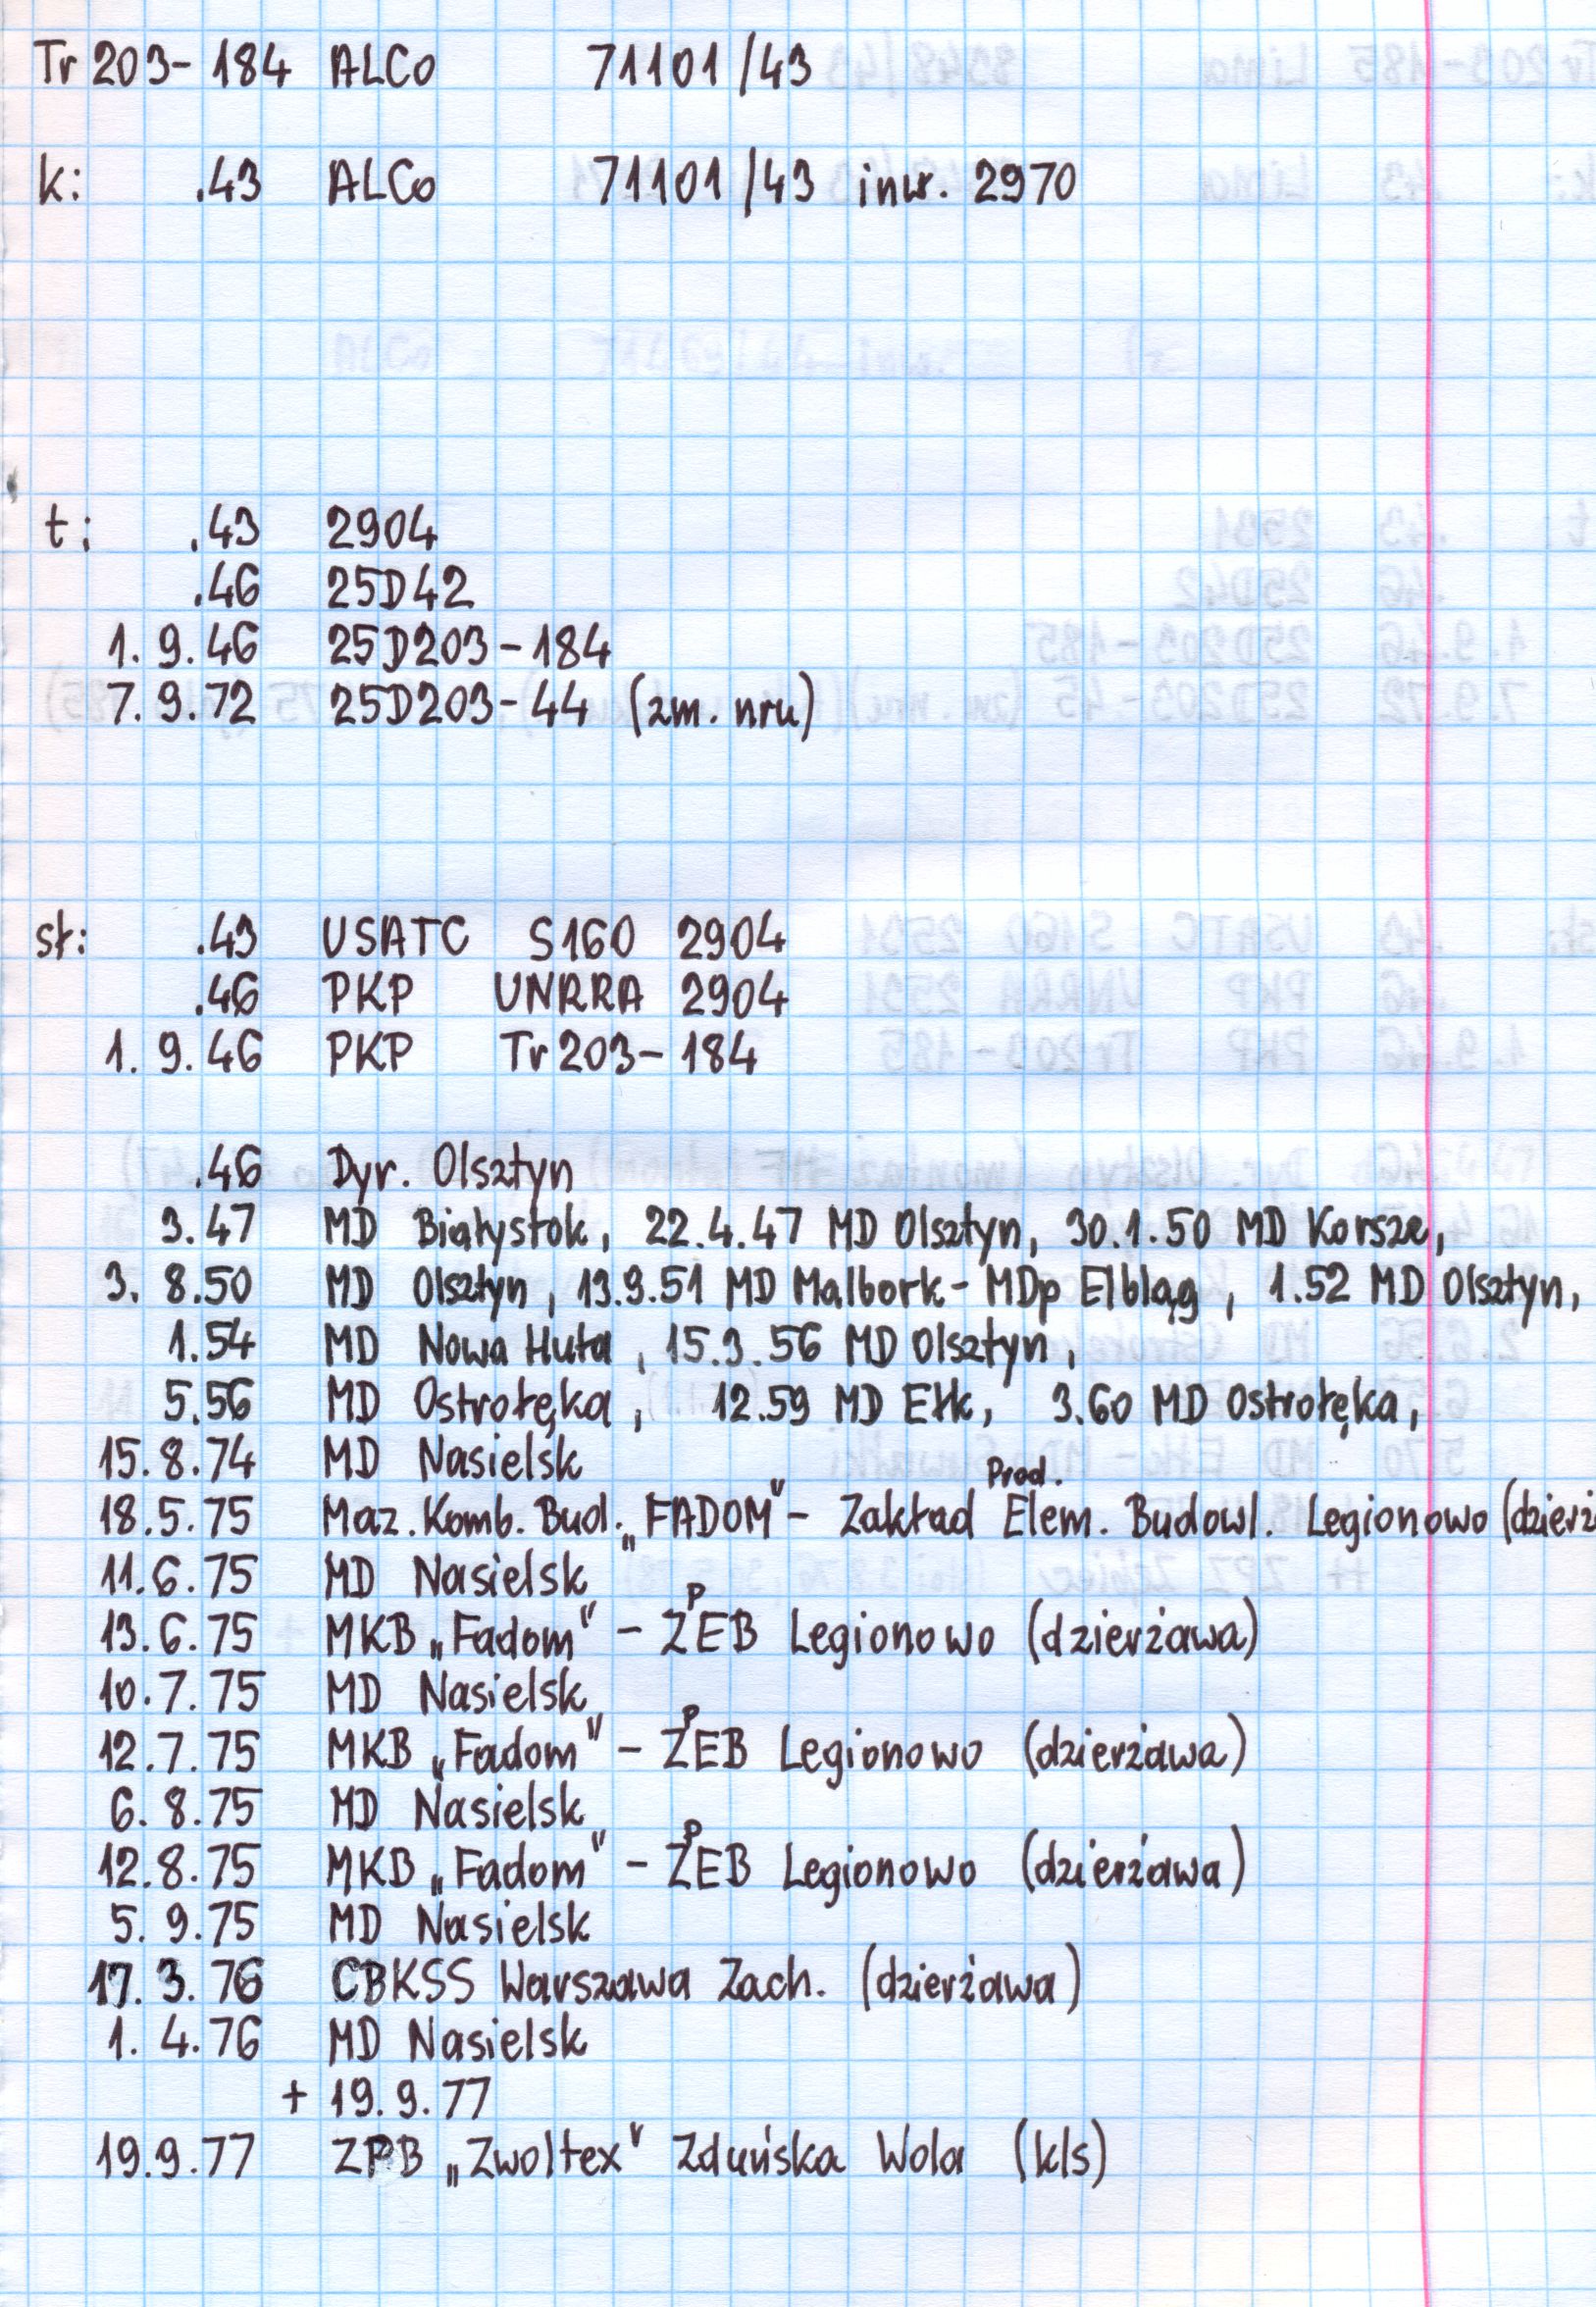 Tr 203-184 ALCo 71101/43
k: .43 ALCo 71101/43 inw. 2970
t: .43 2904
.46 25D42
1. 9.46 25D203-184
7. 9.72 25D203-44 (zm. nru)
sł: .43 USATC S160 2904
.46 PKP UNRRA 2904
1. 9.46 PKP Tr 203-184
.46 Dyr. Olsztyn
3.47 MD Białystok, 22.4.47 MD Olsztyn, 30.1.50 MD Korsze,
3. 8.50 MD Olsztyn, 13.9.51 MD Malbork-MDp Elbląg, 1.52 MD Olsztyn,
1.54 MD Nowa Huta, 15.3.56 MD Olsztyn,
5.56 MD Ostrołęka, 12.59 MD Ełk, 3.60 MD Ostrołęka,
15. 8.74 MD Nasielsk
18.5.75 Maz. Komb. Bud. „FADOM" - Zakład Prod. Elem. Budowl. Legionowo (dzierż
11.6.75 MD Nasielsk
13.6.75 MKB „Fadom" - ZPEB Legionowo (dzierżawa)
10.7.75 MD Nasielsk
12.7.75 MKB „Fadom" - ZPEB Legionowo (dzierżawa)
6. 8.75 MD Nasielsk
12.8.75 MKB „Fadom" - ZPEB Legionowo (dzierżawa)
5. 9.75 MD Nasielsk
17. 3. 76 CBKSS Warszawa Zach. (dzierżawa)
1. 4.76 MD Nasielsk
+ 19.9.77
19.9.77 ZPB „Zwoltex" Zduńska Wola (kls)